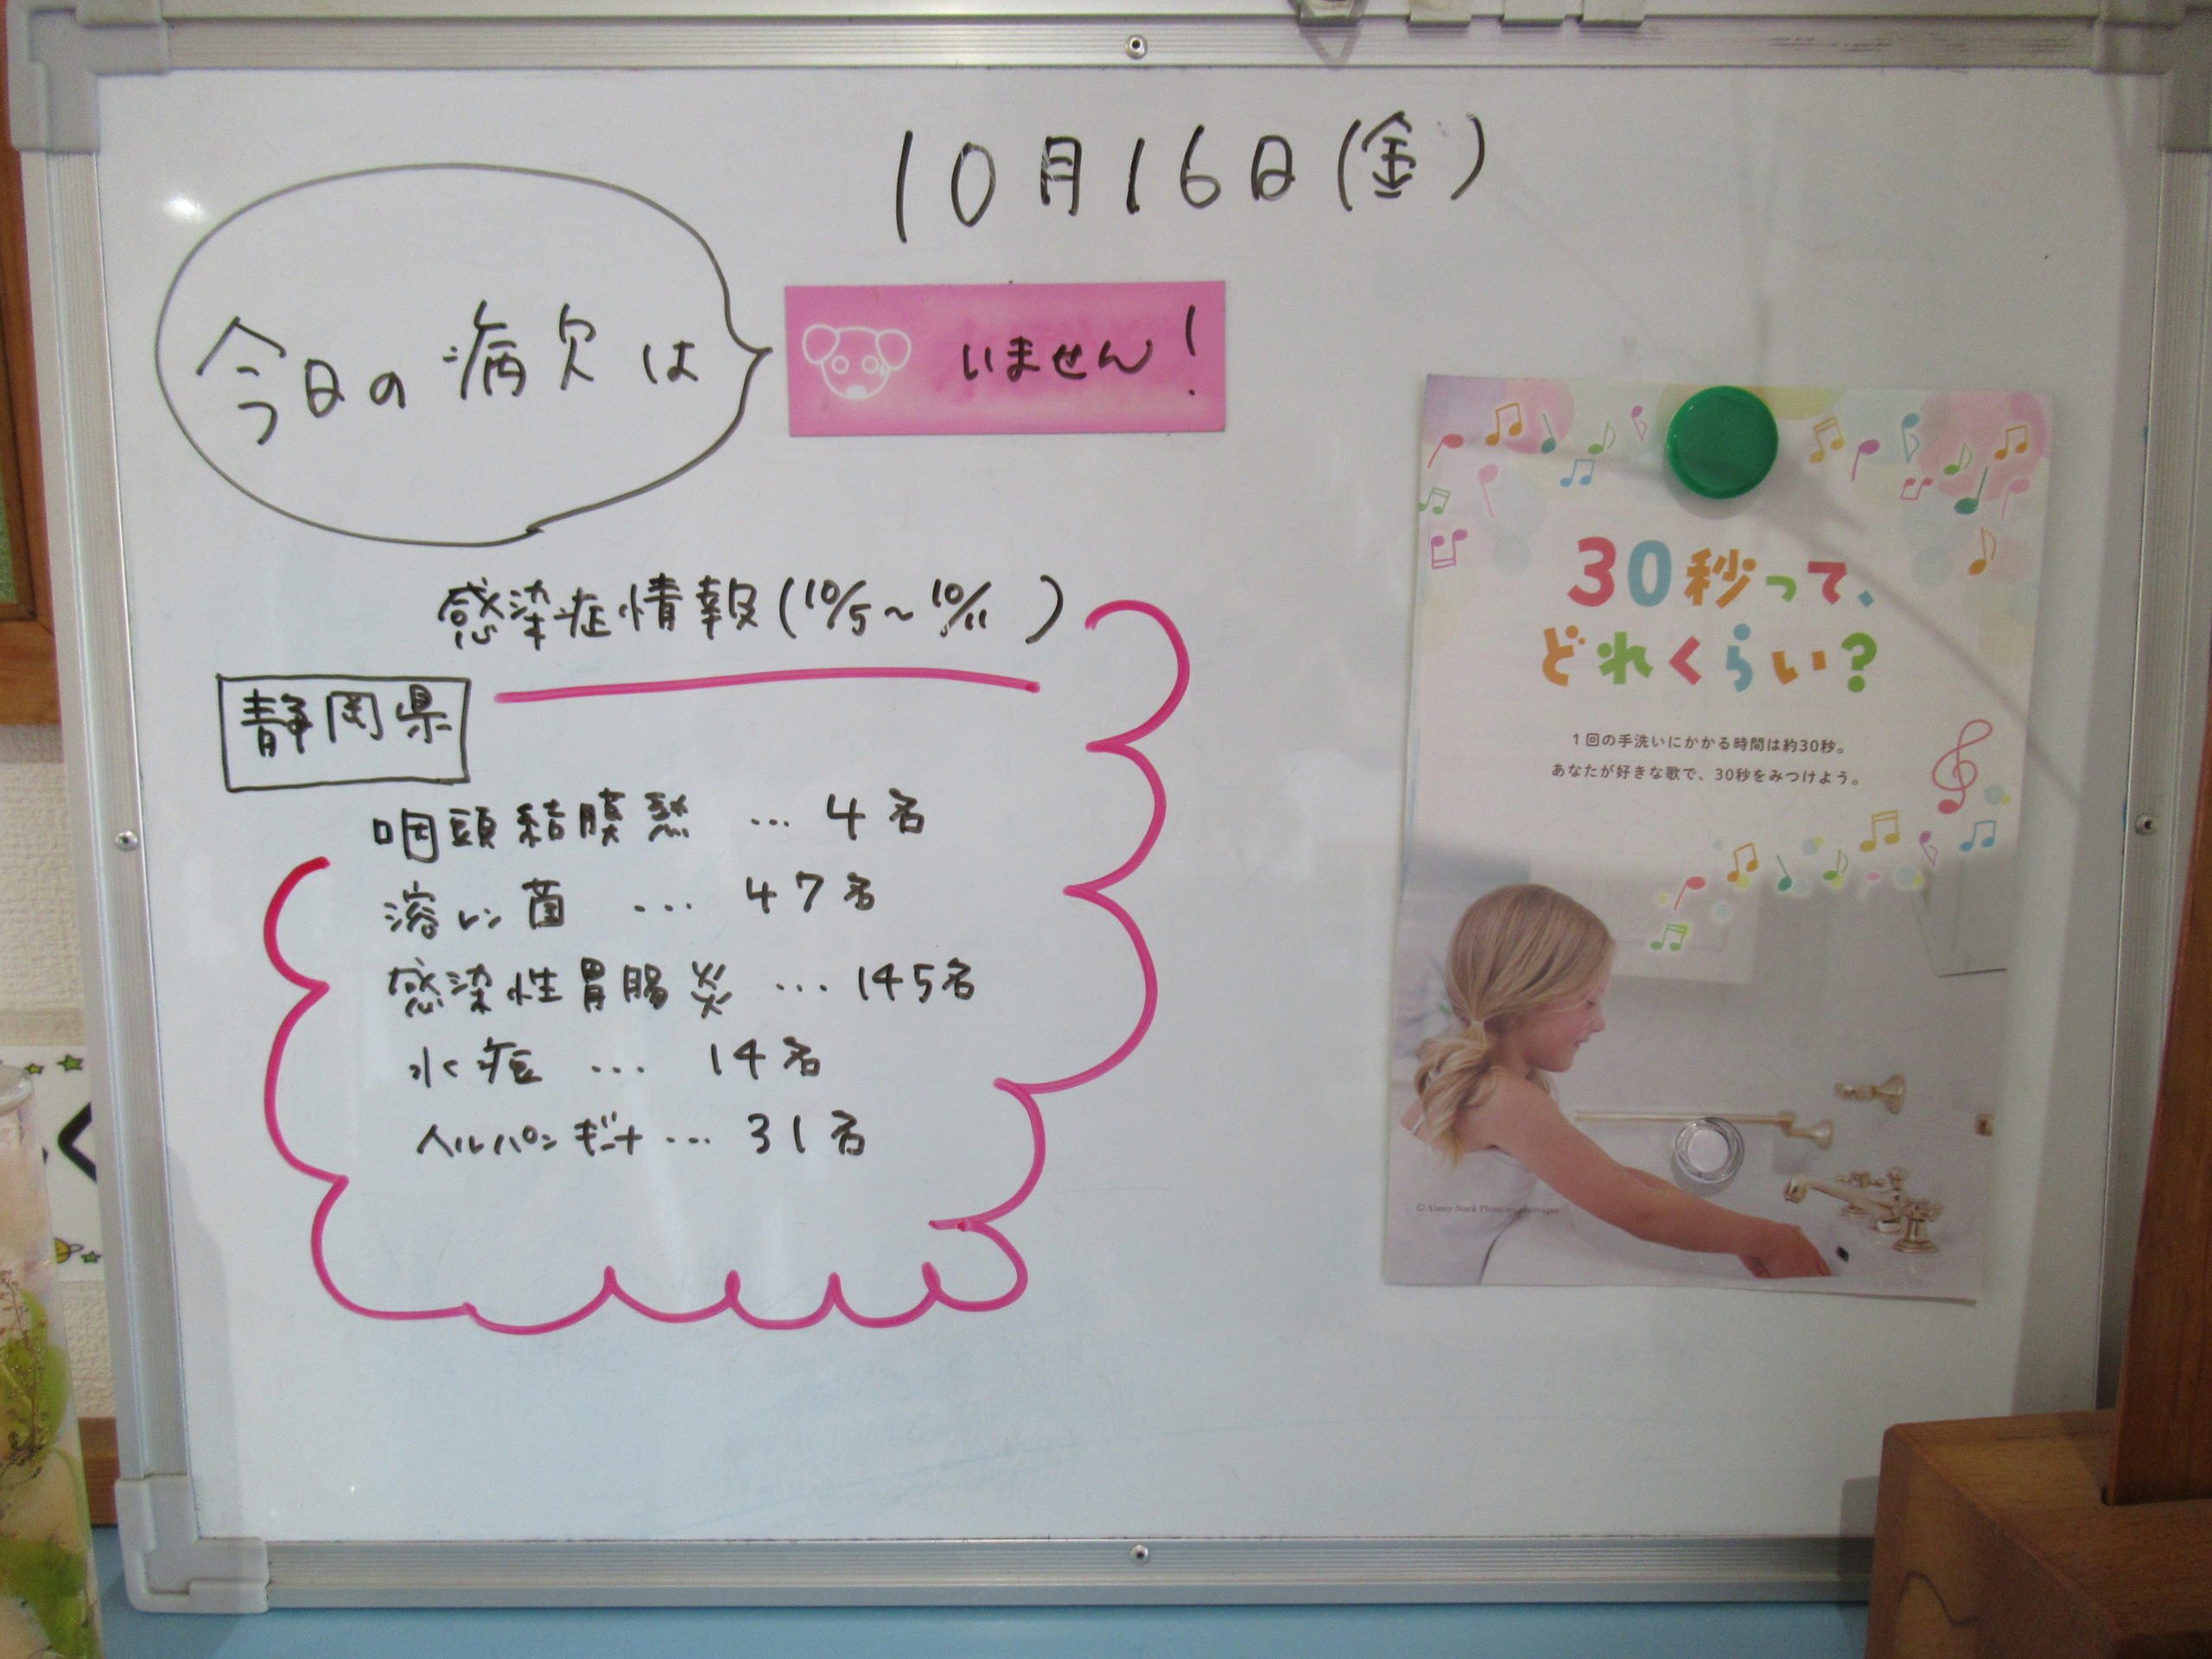 10月16日(金)
今日の病欠は
いません!
感染症情報(10/5~10/11 )
静岡県
咽頭結膜熱 … 4名
溶レン菌 … 47名
感染性胃腸炎 … 145名
水痘 … 14名
ヘルパンギーナ… 31名
30秒って、
どれくらい?
1回の手洗いにかかる時間は約30秒。
あなたが好きな歌で、30秒をみつけよう。
©Alamy Stock Photo/amanaimages